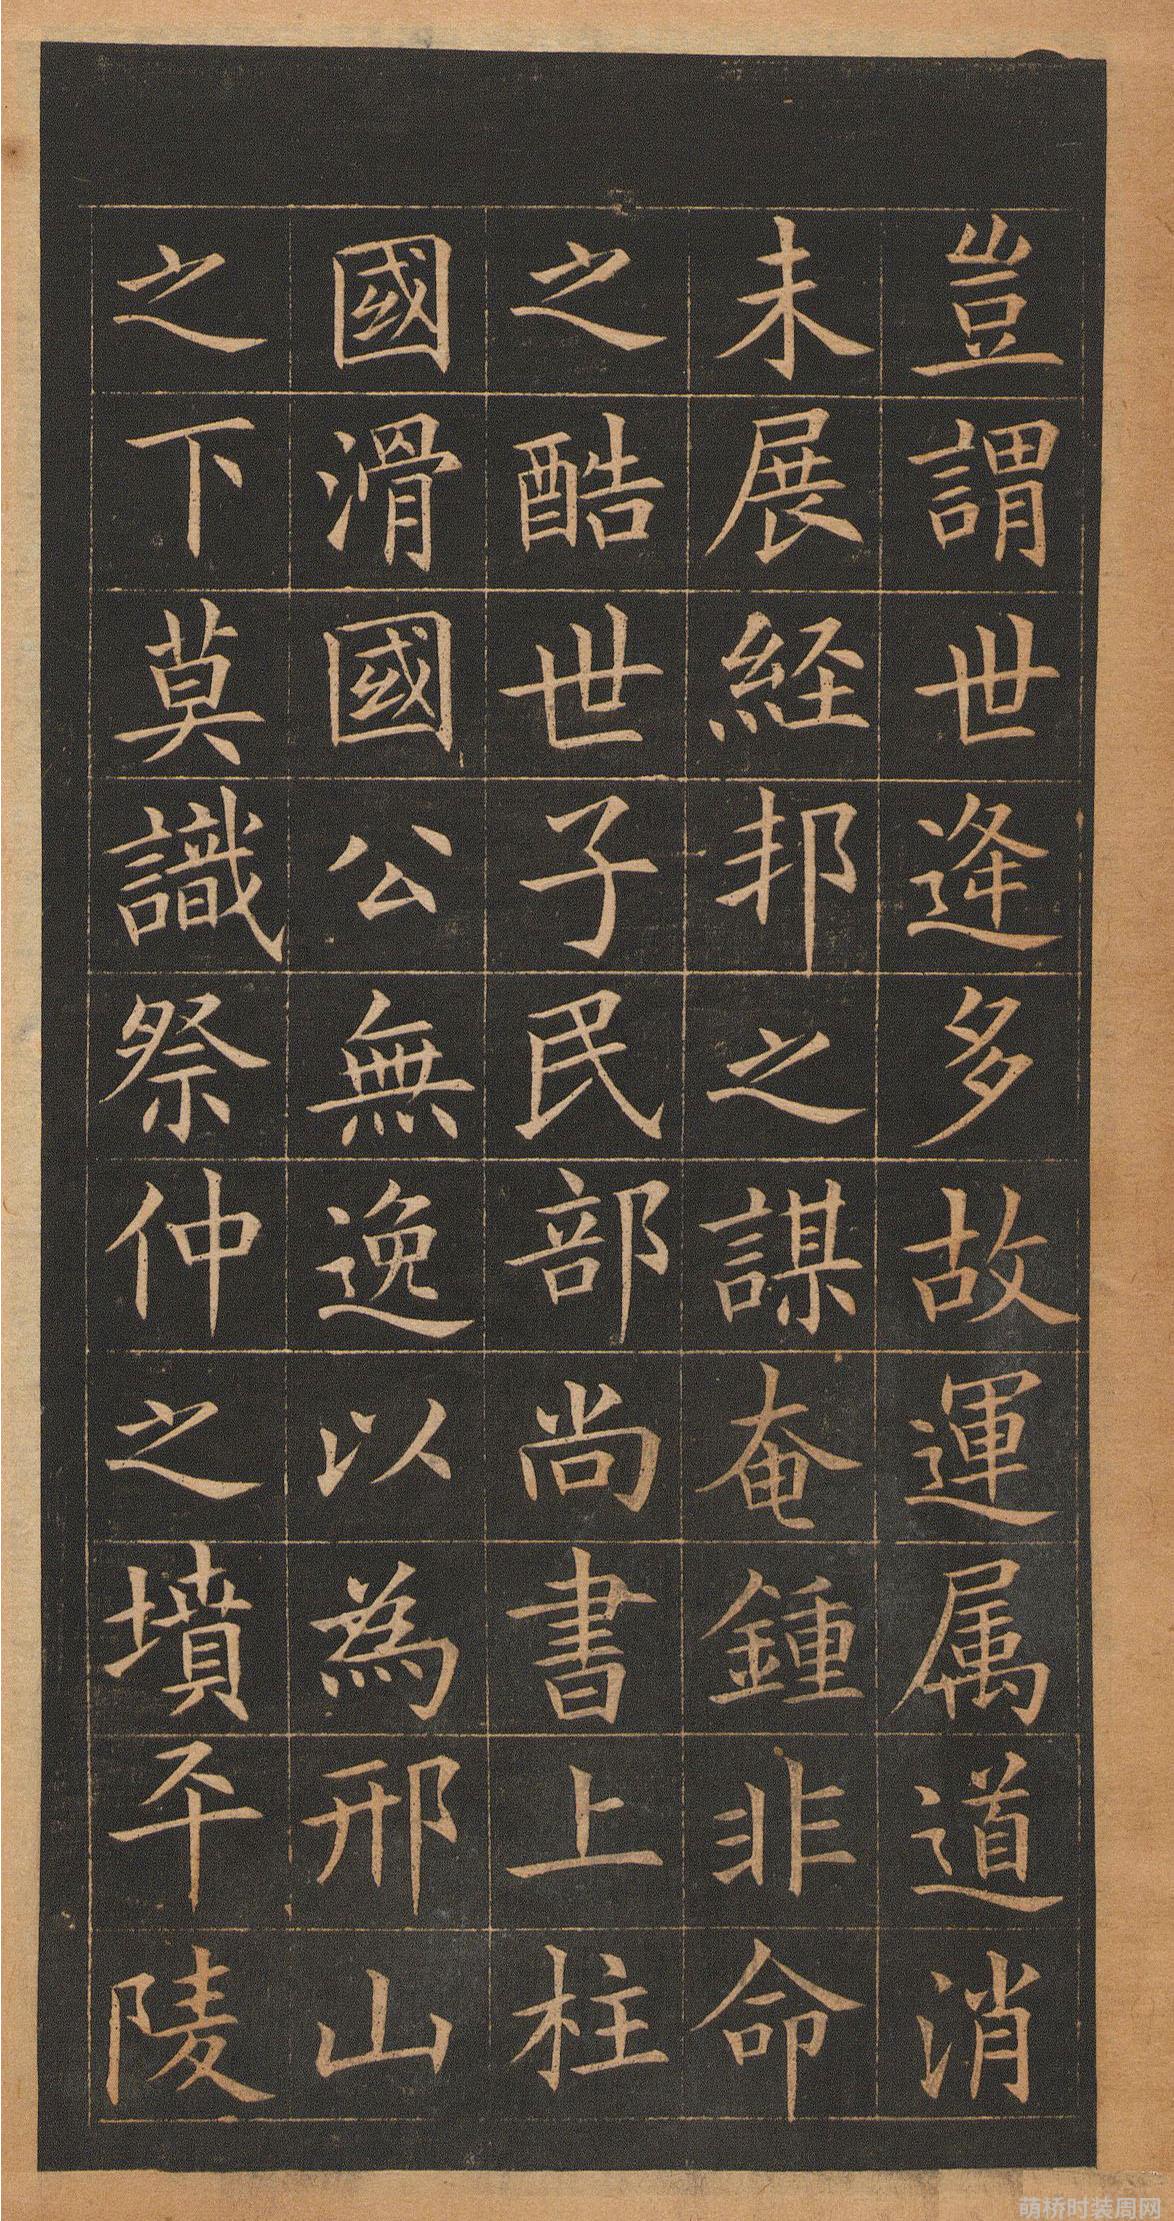 豈謂世逄多故運属道消
未展経邦之謀奄鍾非命
之酷世子民部尚書上柱
國滑國公無逸以為邢山
之下莫識祭仲之墳平陵
萌桥时装周网